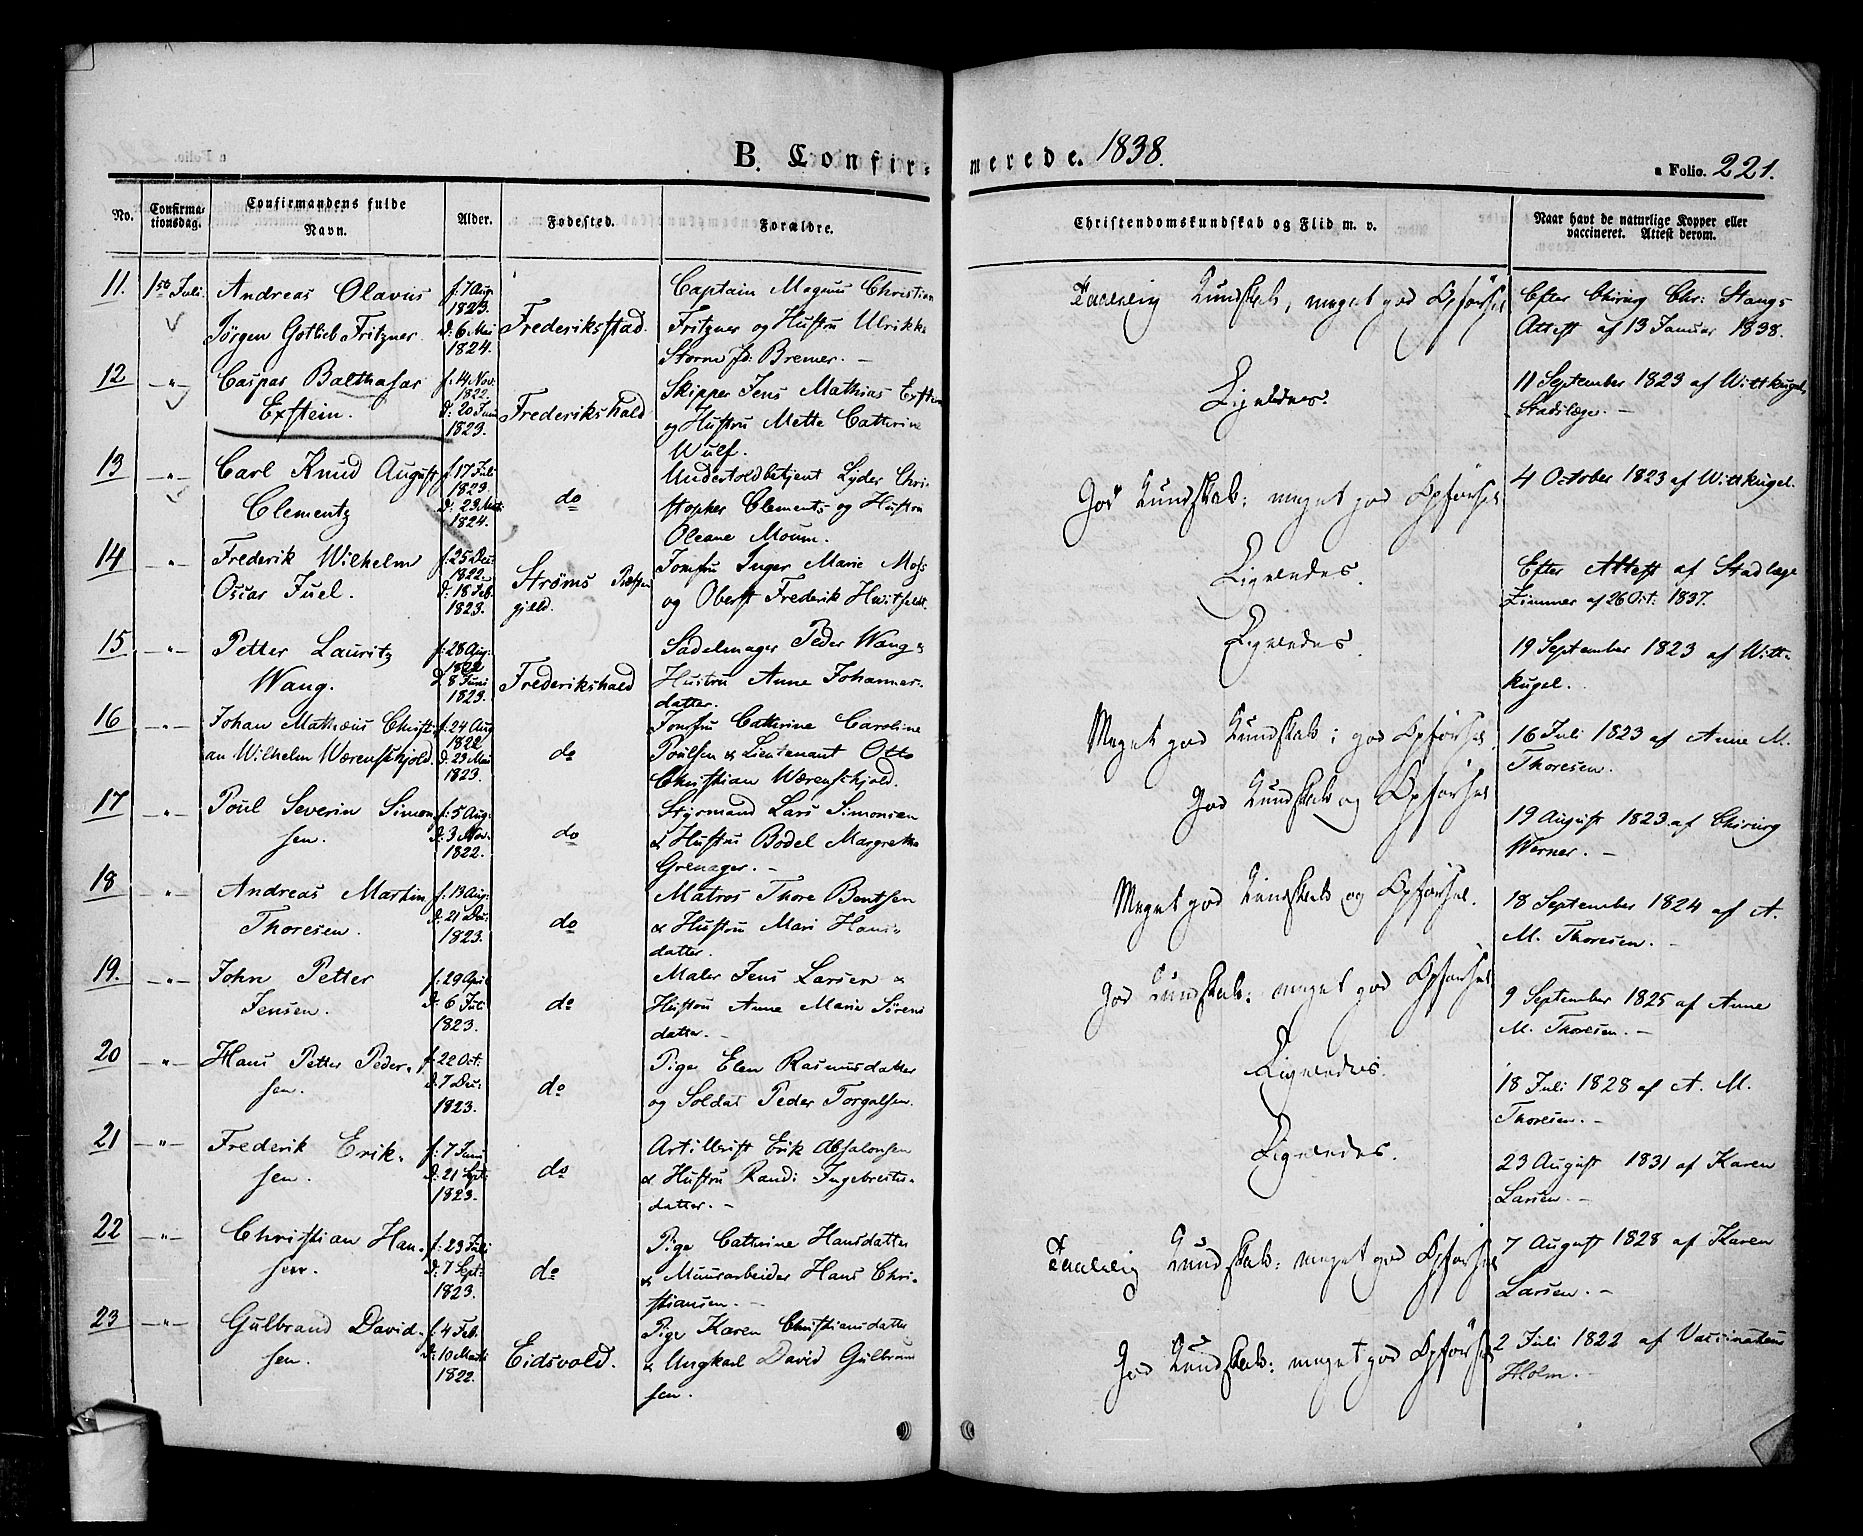 B. Confir-
merede. 1838.
a Folio. 221.
No.
Confirma-
tionsdag.
Confirmandens fulde
Navn.
Alder.
Fødested.
Forældre.
Christendomskundskab og Flid m. v.
Naar havt de naturlige Kopper eller
vaccineret. Attest derom.
11. 1ste Juli. Andreas Olavus
Jørgen Gotlieb Fritzner.
f: 7 Aug.
1823.
d: 6 Mai
1824.
Frederikstad.
Captain Magnus Christian
Fritzner og Hustru Ulrikke
Storm fd: Bremer. —
Taalelig Kundskab, meget god Opførsel
Efter Chirurg Chr: Stangs
Attest af 13 Januar 1838.
12 —"— Caspar Balthasar
Exstein.
f: 14 Nov.
1822.
d: 20 Juni
1823.
Frederikshald
Skipper Jens Mathias Exstein
og Hustru Mette Cathrine
Wulf.
Ligeledes.
11 September 1823 af Wittkugel,
Stadslæge. —
13 —"— Carl Knud August
Clementz
f. 17 Juli
1823.
d: 23 Mai
1824.
do
Undertoldbetjent Lyder Chri-
stopher Clements og Hustru
Oleane Moum.
God Kundskab: meget god Opførsel
4 October 1823 af Wittkugel.
14 " Frederik Wilhelm
Oscar Juel.
f: 25 Dec:
1822.
d: 18 Feb.
1823.
Strøms Præste
gjeld.
Jomfru Inger Marie Moss
og Oberst Frederik Hvitfeldt.
Ligeledes.
Efter Attest af Stadlæge
Zimmer af 26 Oct: 1837.
15 —"— Petter Lauritz
Wang.
f: 28 Aug:
1822
d 8 Juni
1823.
Frederikshald
Sadelmager Peder Wang &
Hustru Anne Johannes-
datter.
Ligeledes.
19 September 1823 af Witt-
kugel.
16 —"— Johan Mathæus Christi-
an Wilhelm Wærenskjold.
f: 24 Aug
1822
d: 23 Mai
1823.
do
Jomfru Cathrine Caroline
Poulsen & Lieutenant Otto
Christian Wærenskjold.
Meget god Kundskab; god Opførsel.
16 Juli 1823 af Anne M.
Thoresen.
17 —"— Poul Severin Simon
sen.
f: 5 Aug:
d: 3 Nov.
1822.
do
Styrmand Lars Simonsen
& Hustru Bodel Margrethe
Grenager. —
God Kundskab og Opførsel
19 August 1823. af Chirurg
Werner. —
18 —"— Andreas Martin
Thoresen.
f. 13 Aug:
d: 21 Dec:
1823.
do
Matros Thore Bentsen
& Hustru Mari Hans-
datter.
Meget god Kundskab og Opførsel.
18 September 1824 af A.
M. Thoresen. —
19. —"— John Petter
Jensen.
f: 29 April
d: 6 Jul
1823.
do
Maler Jens Larsen &
Hustru Anne Marie Sørens
datter. —
God Kundskab: meget god Opførsel
9 September 1825 af Anne
M. Thoresen. —
20 —"— Hans Petter Peder-
sen.
f: 22 Oct.
d: 7 Dec:
1823.
do
Pige Elen Rasmusdatter
og Soldat Peder Torgalsen.
Ligeledes.
18 Juli 1828 af A. M.
Thoresen. —
21 —"— Frederik Erik-
sen.
f: 7 Juni
d: 21 Sept:
1823.
do
Artillerist Erik Absalonsen
& Hustru Randi Ingebrets-
datter. —
Ligeledes.
23 August 1831 af Karen
Larsen. —
22 —"— Christian Han-
sen.
f: 23 Juli
d: 7 Sept:
1823.
do
Pige Cathrine Hansdatter
& Muurarbeider Hans Chri-
stiansen. —
Taalelig Kundskab: meget god Opførsel
7 August 1828 af Karen
Larsen. —
23 —"— Gulbrand David-
sen.
f: 4 Feb.
d: 10 Marti
1822.
Eidsvold.
Pige Karen Christiansdatter
& Ungkarl David Gulbran
sen.
God Kundskab: meget god Opførsel
2 Juli 1822 af Vaccinateur
Holm. —